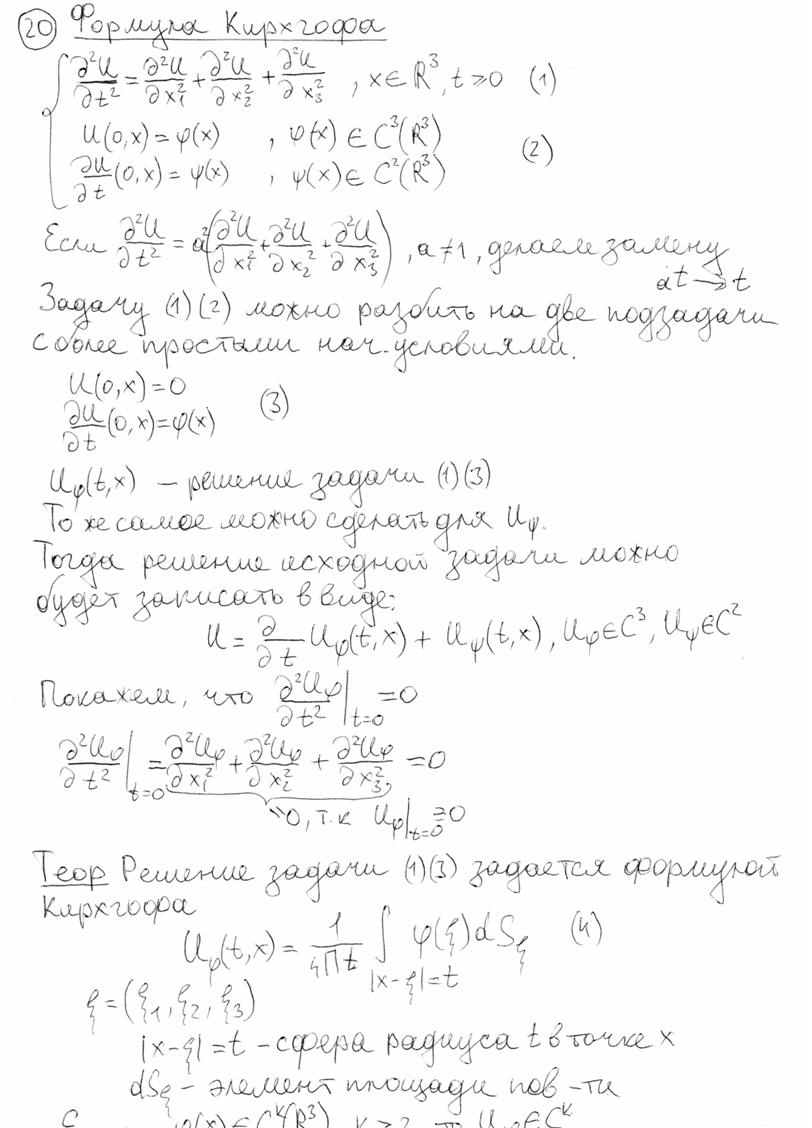 20 Формула Кирхгофа
∂²U/∂t² = ∂²U/∂x₁² + ∂²U/∂x₂² + ∂²U/∂x₃² , x∈R³, t≥0 (1)
U(0,x)=φ(x) , φ(x)∈C³(R³)
∂U/∂t(0,x)=ψ(x) , ψ(x)∈C²(R³) (2)
Если ∂²U/∂t² = a²(∂²U/∂x₁² + ∂²U/∂x₂² + ∂²U/∂x₃²) , a≠1, делаем замену
at → t
Задачу (1)(2) можно разбить на две подзадачи
с более простыми нач. условиями.
U(0,x)=0
∂U/∂t(0,x)=φ(x) (3)
Uφ(t,x) – решение задачи (1)(3)
То же самое можно сделать для Uψ.
Тогда решение исходной задачи можно
будет записать в виде:
U = ∂/∂t Uφ(t,x) + Uψ(t,x), Uφ∈C³, Uψ∈C²
Покажем, что ∂²Uφ/∂t²|t=0 =0
∂²Uφ/∂t²|t=0 = ∂²Uφ/∂x₁² + ∂²Uφ/∂x₂² + ∂²Uφ/∂x₃² =0
"0, т.к Uφ|t=0 =0
Теор Решение задачи (1)(3) задается формулой
Кирхгофа
Uφ(t,x) = 1/4Πt ∫|x-ξ|=t φ(ξ)dSξ (4)
ξ=(ξ₁,ξ₂,ξ₃)
|x-ξ|=t – сфера радиуса t в точке x
dSξ – элемент площади пов-ти
φ(x)∈Cᵏ(R³), k≥2, то Uφ∈Cᵏ